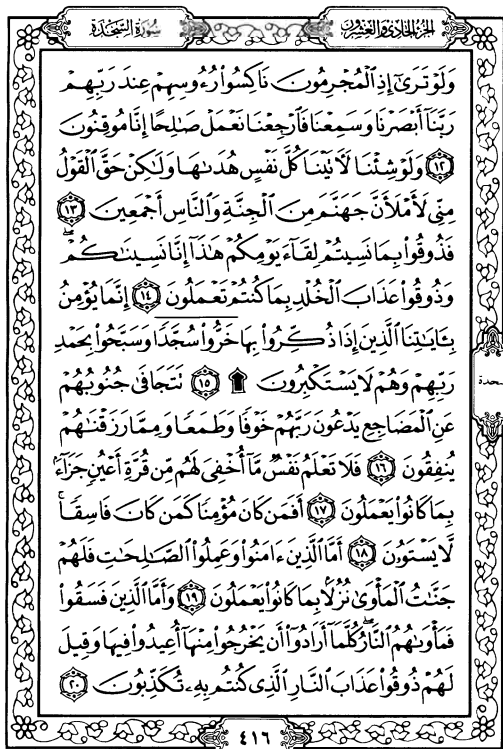 سُورَةُ السَّجْدَةِ
الجزء الحادي والعشرون
وَلَوْ تَرَىٰٓ إِذِ ٱلْمُجْرِمُونَ نَاكِسُوا۟ رُءُوسِهِمْ عِندَ رَبِّهِمْ
رَبَّنَآ أَبْصَرْنَا وَسَمِعْنَا فَٱرْجِعْنَا نَعْمَلْ صَٰلِحًا إِنَّا مُوقِنُونَ
١٢ وَلَوْ شِئْنَا لَءَاتَيْنَا كُلَّ نَفْسٍ هُدَىٰهَا وَلَٰكِنْ حَقَّ ٱلْقَوْلُ
مِنِّى لَأَمْلَأَنَّ جَهَنَّمَ مِنَ ٱلْجِنَّةِ وَٱلنَّاسِ أَجْمَعِينَ ١٣
فَذُوقُوا۟ بِمَا نَسِيتُمْ لِقَآءَ يَوْمِكُمْ هَٰذَآ إِنَّا نَسِينَٰكُمْ ۖ
وَذُوقُوا۟ عَذَابَ ٱلْخُلْدِ بِمَا كُنتُمْ تَعْمَلُونَ ١٤ إِنَّمَا يُؤْمِنُ
بِـَٔايَٰتِنَا ٱلَّذِينَ إِذَا ذُكِّرُوا۟ بِهَا خَرُّوا۟ سُجَّدًا وَسَبَّحُوا۟ بِحَمْدِ
رَبِّهِمْ وَهُمْ لَا يَسْتَكْبِرُونَ ۩ ١٥ تَتَجَافَىٰ جُنُوبُهُمْ
عَنِ ٱلْمَضَاجِعِ يَدْعُونَ رَبَّهُمْ خَوْفًا وَطَمَعًا وَمِمَّا رَزَقْنَٰهُمْ
يُنفِقُونَ ١٦ فَلَا تَعْلَمُ نَفْسٌ مَّآ أُخْفِىَ لَهُم مِّن قُرَّةِ أَعْيُنٍ جَزَآءًۢ
بِمَا كَانُوا۟ يَعْمَلُونَ ١٧ أَفَمَن كَانَ مُؤْمِنًا كَمَن كَانَ فَاسِقًا ۚ
لَّا يَسْتَوُۥنَ ١٨ أَمَّا ٱلَّذِينَ ءَامَنُوا۟ وَعَمِلُوا۟ ٱلصَّٰلِحَٰتِ فَلَهُمْ
جَنَّٰتُ ٱلْمَأْوَىٰ نُزُلًۢا بِمَا كَانُوا۟ يَعْمَلُونَ ١٩ وَأَمَّا ٱلَّذِينَ فَسَقُوا۟
فَمَأْوَىٰهُمُ ٱلنَّارُ ۖ كُلَّمَآ أَرَادُوٓا۟ أَن يَخْرُجُوا۟ مِنْهَآ أُعِيدُوا۟ فِيهَا وَقِيلَ
لَهُمْ ذُوقُوا۟ عَذَابَ ٱلنَّارِ ٱلَّذِى كُنتُم بِهِۦ تُكَذِّبُونَ ٢٠
٤١٦